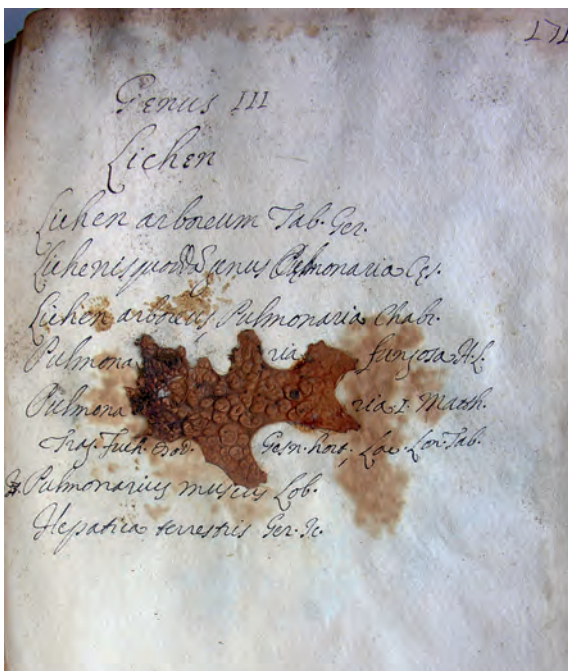 171
Genus III
Lichen
Lichen arboreum Tab. Ger.
Genus Pulmonaria Cæs.
Lichen arboreus, Pulmonaria Chabr.
Pulmona ria fungosa H.L.
Pulmona ria I. Matth.
Trag. Fuch. Dod. Gesn. hort. Lac. Lon. Tab.
Pulmonarius muscus Lob.
Hepatica terrestris Ger. Ic.